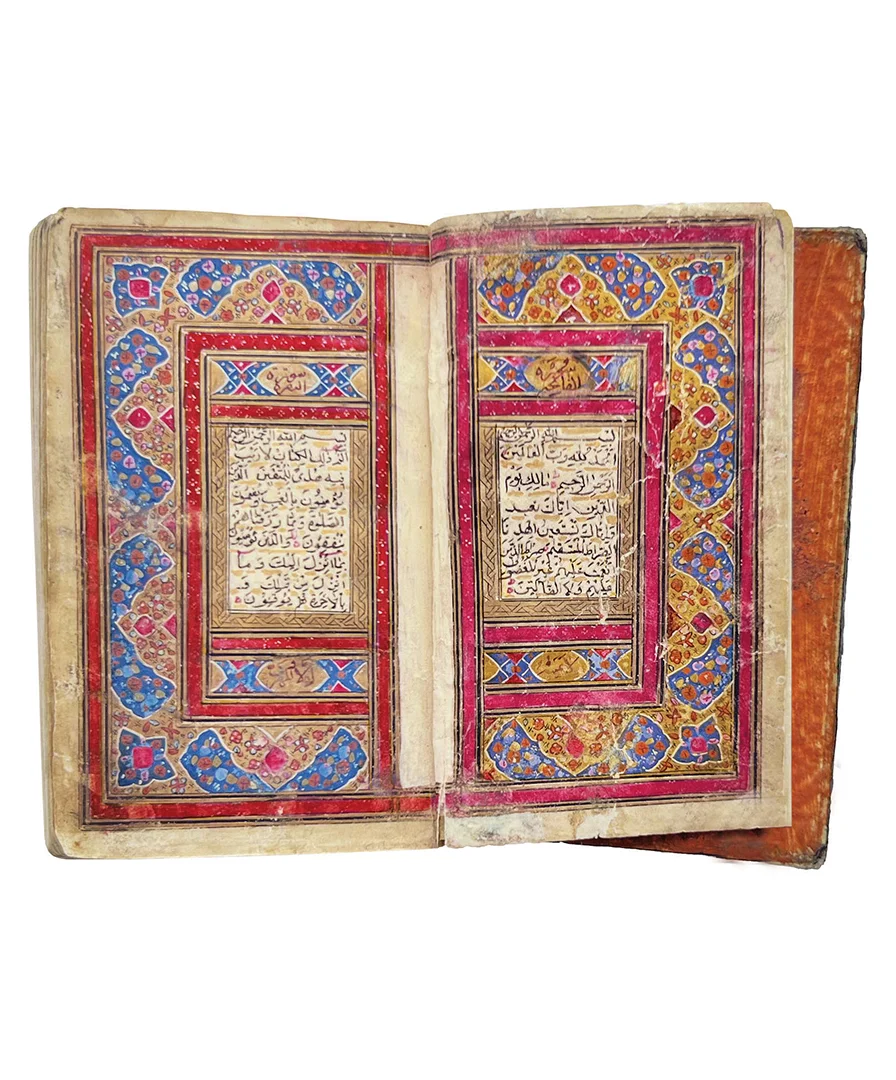 سورة الفاتحة
بسم الله الرحمن الرحيم
الحمد لله رب العالمين
الرحمن الرحيم مالك يوم
الدين اياك نعبد
واياك نستعين اهدنا
الصراط المستقيم صراط الذين
انعمت عليهم غير المغضوب
عليهم ولا الضالين
سورة البقرة
بسم الله الرحمن الرحيم
الم ذلك الكتاب لا ريب
فيه هدى للمتقين الذين
يؤمنون بالغيب ويقيمون
الصلوة ومما رزقناهم
ينفقون والذين يؤمنون
بما انزل اليك وما
انزل من قبلك و
بالاخرة هم يوقنون